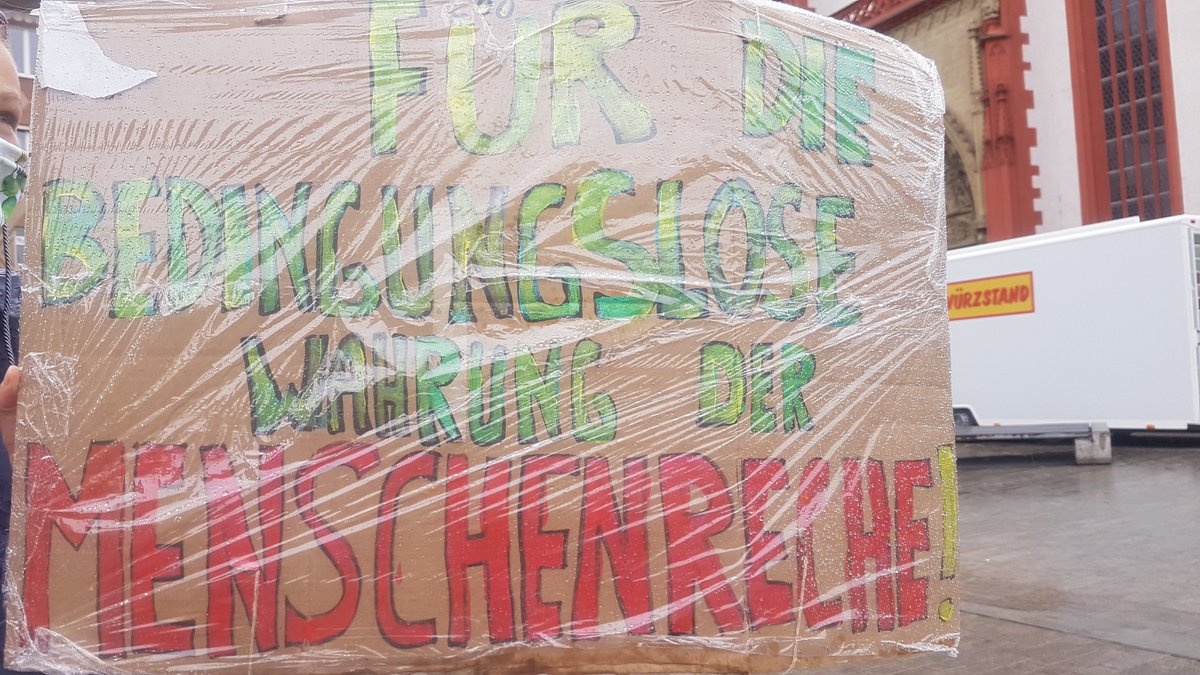 FÜR DIE
BEDINGUNGSLOSE
WAHRUNG DER
MENSCHENRECHE!
WÜRZSTAND